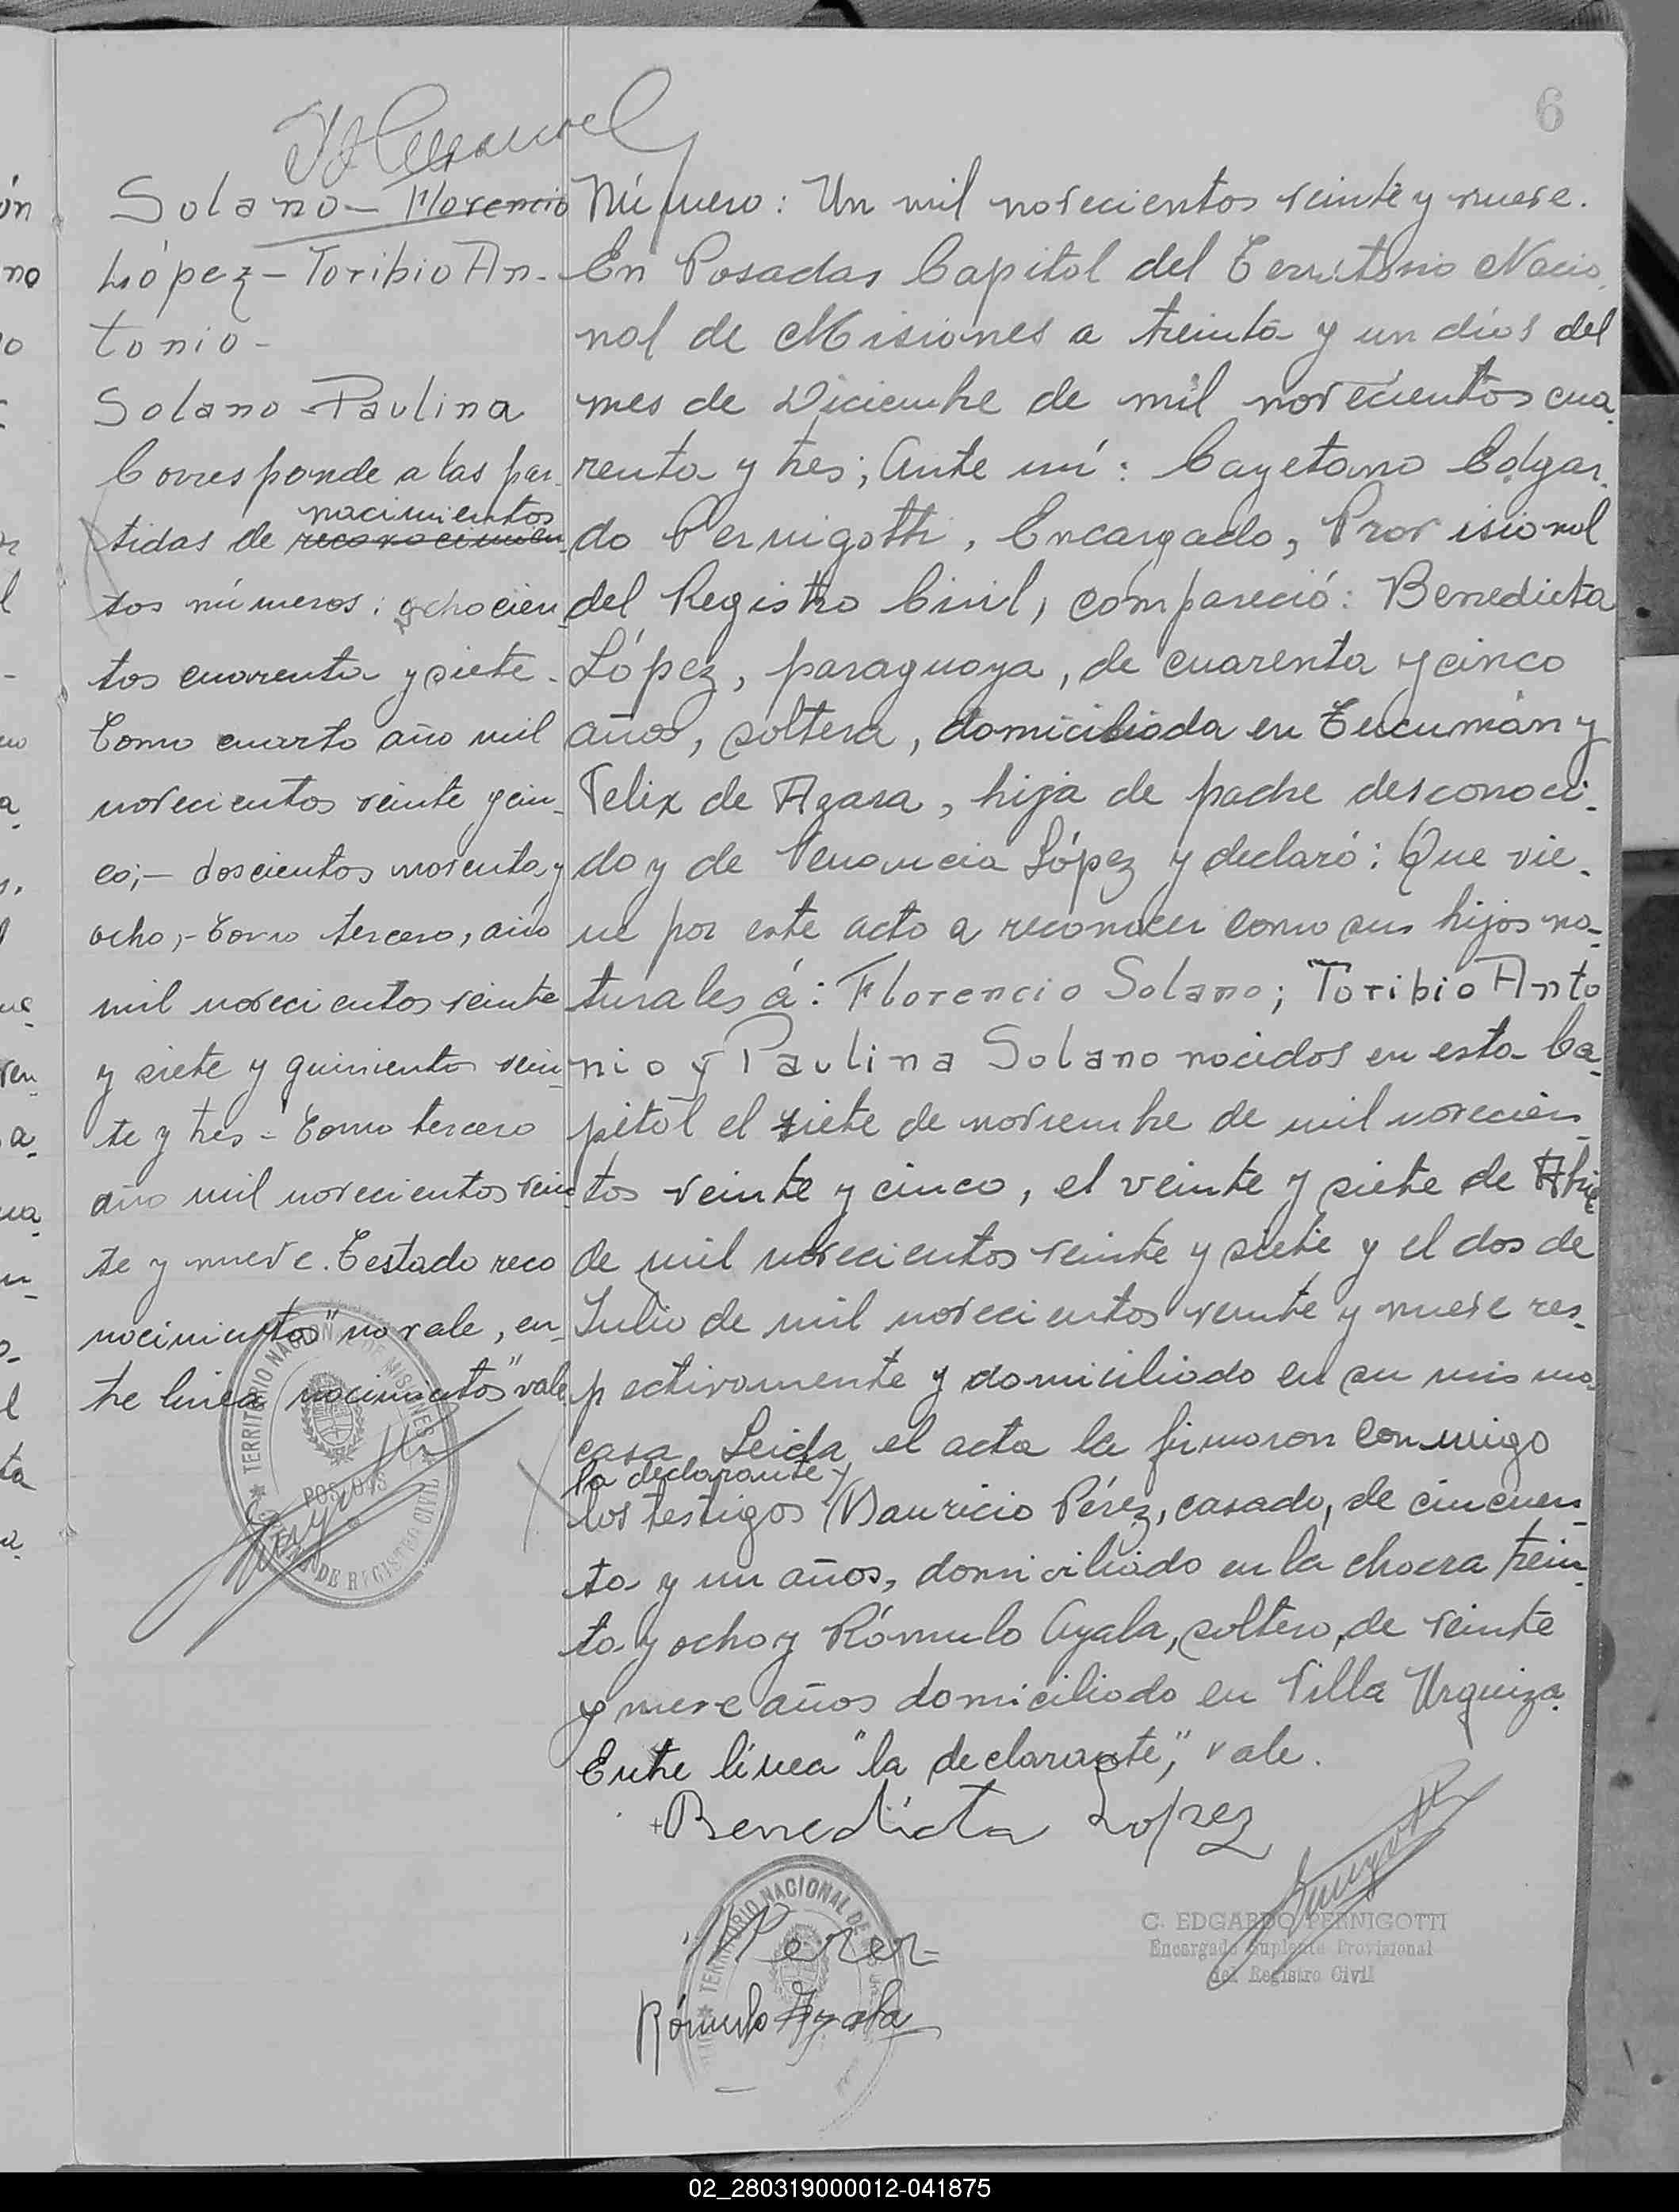 6
Solano - Florencio
López - Toribio An-
tonio -
Solano - Paulina
Corresponde a las par-
nacimientos
tidas de reconocimien-
tos números: ochocien-
tos cuarenta y siete -
Tomo cuarto año mil
novecientos veinte y cin-
co; - doscientos noventa y
ocho, - tomo tercero, año
mil novecientos veinte
y siete y quinientos vein-
te y tres - Tomo tercero
año mil novecientos vein-
te y nueve. Testado reco
nocimientos" no vale, en-
tre linea "nacimientos" vale.
TERRITORIO NACIONAL DE MISIONES
POSADAS
REGISTRO CIVIL
Número: Un mil novecientos veinte y nueve.
En Posadas Capital del Territorio Nacio-
nal de Misiones a treinta y un días del
mes de Diciembre de mil novecientos cua-
renta y tres; Ante mí: Cayetano Edgar-
do Pernigotti, Encargado, Provisional
del Registro Civil, compareció: Benedicta
López, paraguaya, de cuarenta y cinco
años, soltera, domiciliada en Tucumán y
Felix de Azara, hija de padre desconoci-
do y de Venancia López y declaró: Que vie-
ne por este acto a reconocer como sus hijos na-
turales á: Florencio Solano; Toribio Anto
nio y Paulina Solano nacidos en esta Ca-
pital el siete de noviembre de mil novecien-
tos veinte y cinco, el veinte y siete de Abril
de mil novecientos veinte y siete y el dos de
Julio de mil novecientos veinte y nueve res-
pectivamente y domiciliado en su misma
casa. Leida el acta la firmaron conmigo
la declarante y
los testigos Mauricio Pérez, casado, de cincuen-
ta y un años, domiciliado en la chacra trein-
ta y ocho y Rómulo Ayala, soltero, de veinte
y nueve años domiciliado en Villa Urquiza.
Entre línea "la declarante," vale.
Benedicta Lopez
TERRITORIO NACIONAL DE
Perez
Rómulo Ayala
C. EDGARDO PERNIGOTTI
Encargado Suplente Provisional
del Registro Civil
02_280319000012-041875